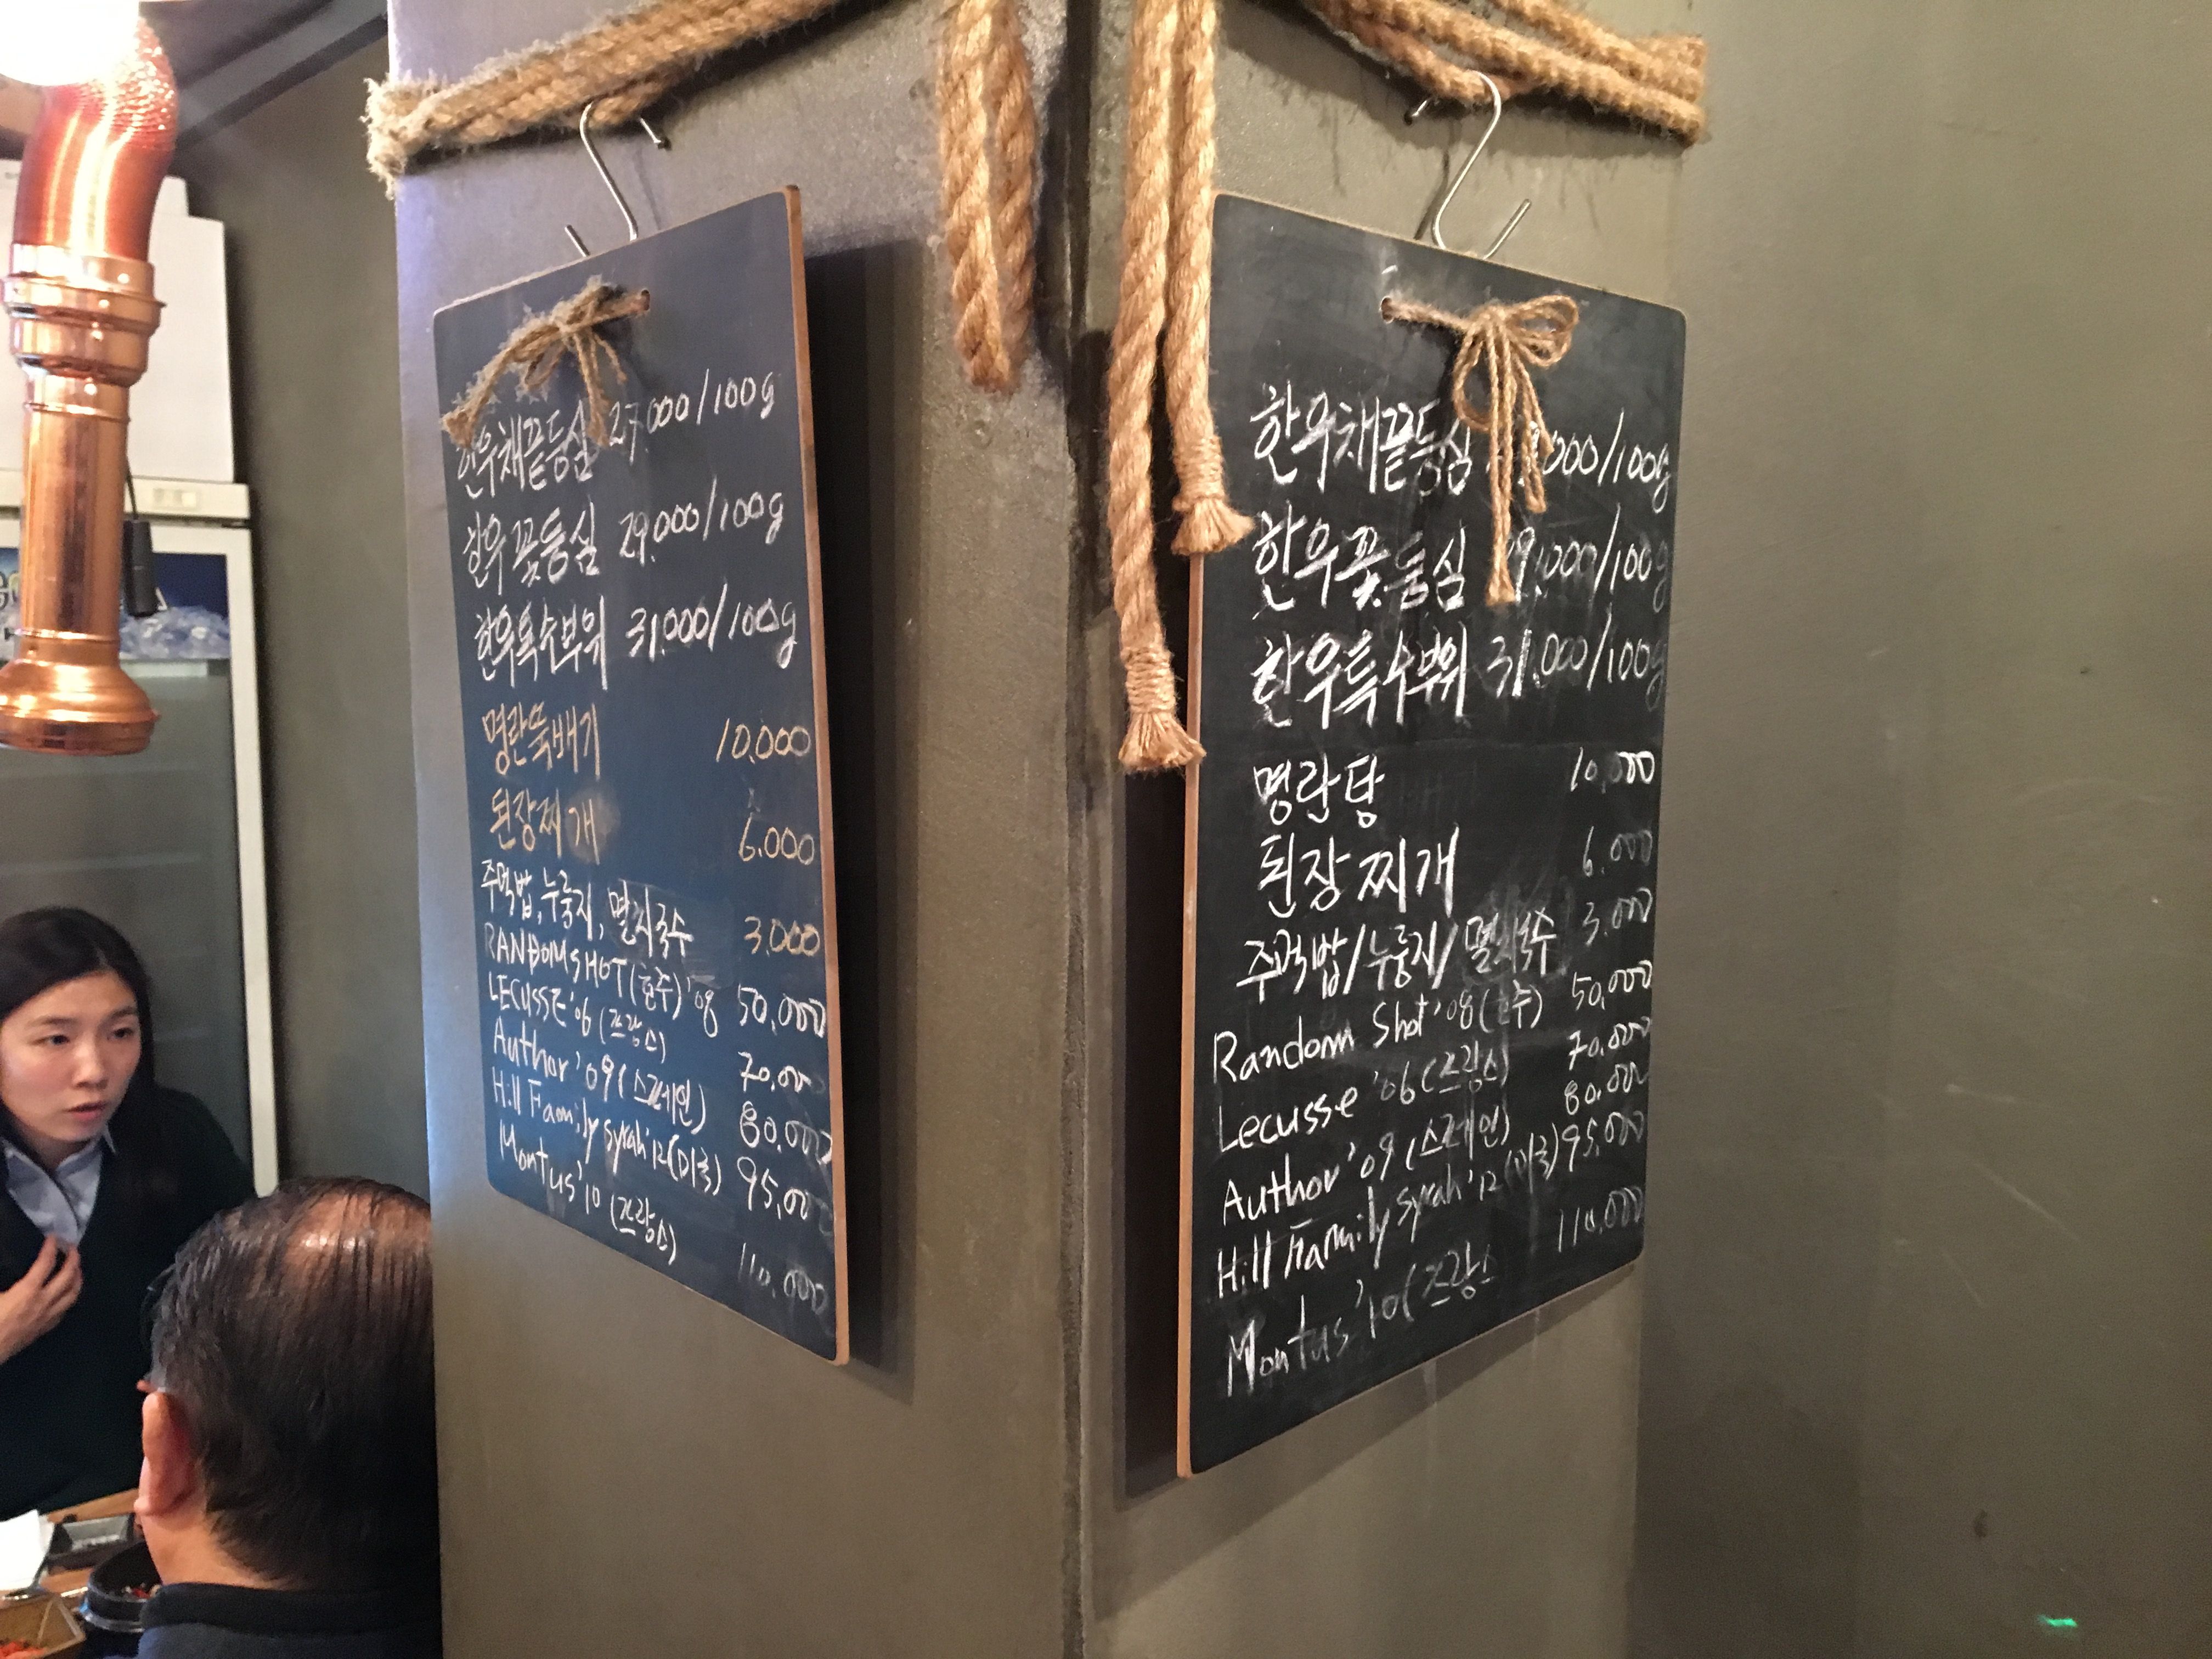 한우채끝등심 27.000/100g
한우꽃등심 29.000/100g
한우특수부위 31.000/100g
명란뚝배기 10.000
된장찌개 6.000
주먹밥, 누룽지, 멸치국수 3.000
RANDOM SHOT (호주) '08 50,000
LECUSSE '06 (프랑스) 70,000
Author '09 (스페인) 80,000
Hill Family Syrah '12 (미국) 95,000
Montus '10 (프랑스) 110,000
한우채끝등심 000/100g
한우꽃등심 9.000/100g
한우특수부위 31.000/100g
명란탕 10,000
된장찌개 6.000
주먹밥/누룽지/멸치국수 3.000
Random Shot '08 (호주) 50,000
Lecusse '06 (프랑스) 70,000
Author '09 (스페인) 80,000
Hill Family Syrah '12 (미국) 95,000
Montus '10 (프랑스 110,000